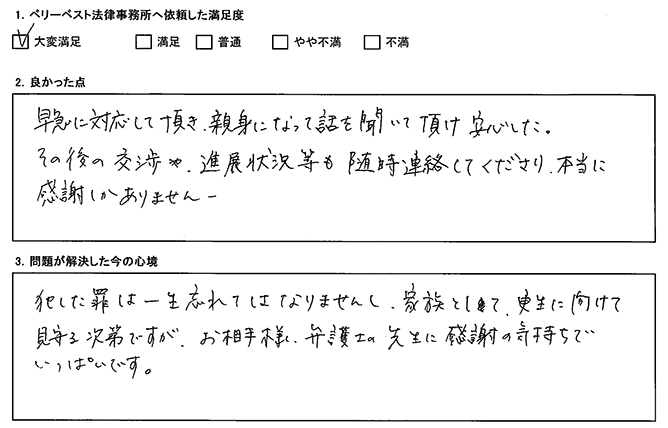 1. ベリーベスト法律事務所へ依頼した満足度
大変満足 満足 普通 やや不満 不満
2. 良かった点
早急に対応して頂き、親身になって話を聞いて頂け安心した。
その後の交渉や、進展状況等も随時連絡してくださり、本当に
感謝しかありませんー
3. 問題が解決した今の心境
犯した罪は一生忘れてはなりませんし、家族として、更生に向けて
見守る次第ですが、お相手様、弁護士の先生に感謝の気持ちで
いっぱいです。